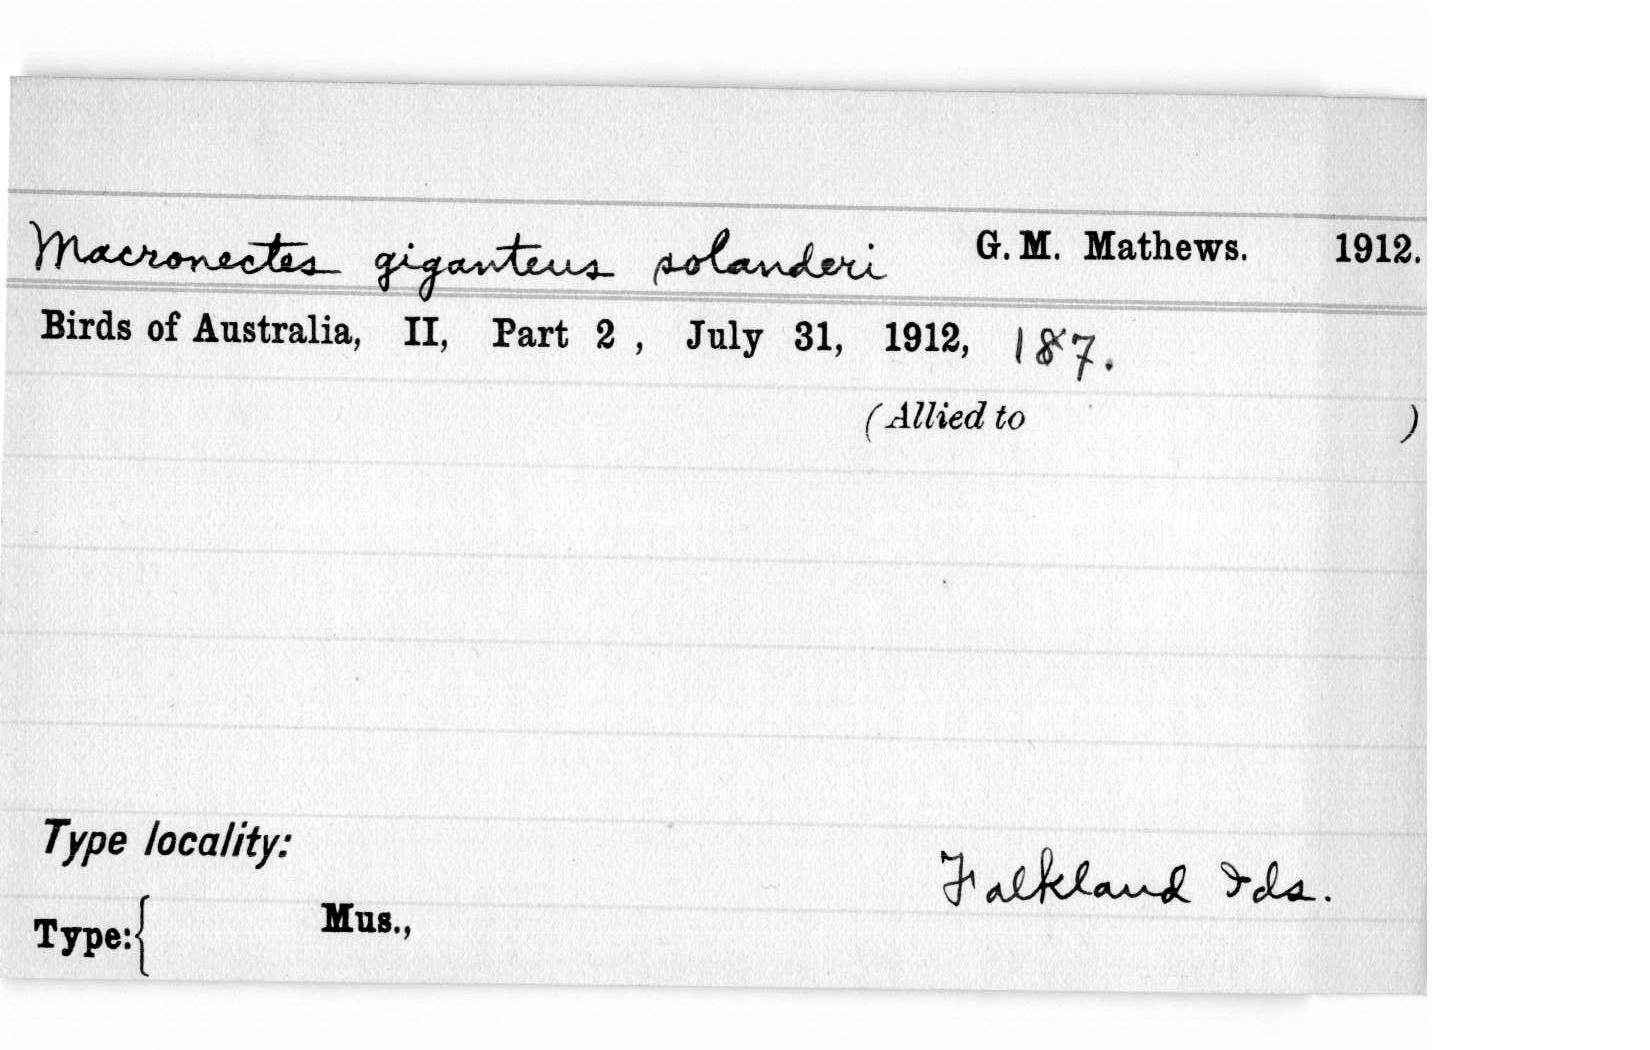 Macronectes giganteus solanderi G. M. Mathews. 1912.
Birds of Australia, II, Part 2 , July 31, 1912, 187.
(Allied to )
Type locality:
Falkland Ids.
Type:{ Mus.,